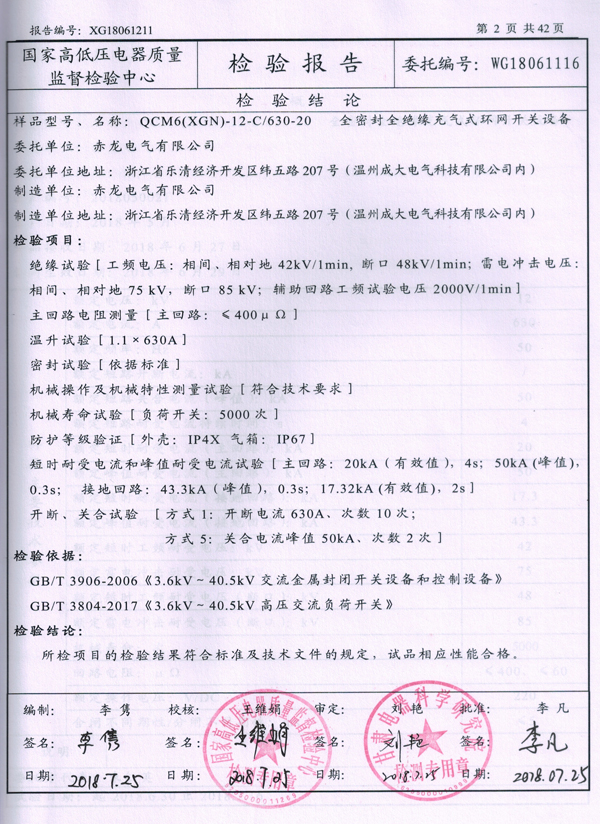 报告编号：XG18061211 第 2 页 共 42 页
国家高低压电器质量
监督检验中心
检 验 报 告
委托编号：WG18061116
检 验 结 论
样品型号、名称：QCM6(XGN)-12-C/630-20 全密封全绝缘充气式环网开关设备
委托单位：赤龙电气有限公司
委托单位地址：浙江省乐清经济开发区纬五路 207 号（温州成大电气科技有限公司内）
制造单位：赤龙电气有限公司
制造单位地址：浙江省乐清经济开发区纬五路 207 号（温州成大电气科技有限公司内）
检验项目：
绝缘试验［工频电压：相间、相对地 42kV/1min, 断口 48kV/1min；雷电冲击电压：
相间、相对地 75 kV，断口 85 kV；辅助回路工频试验电压 2000V/1min］
主回路电阻测量［主回路：≤400μΩ］
温升试验［1.1×630A］
密封试验［依据标准］
机械操作及机械特性测量试验［符合技术要求］
机械寿命试验［负荷开关：5000 次］
防护等级验证［外壳：IP4X 气箱：IP67］
短时耐受电流和峰值耐受电流试验［主回路：20kA（有效值），4s；50kA(峰值)，
0.3s； 接地回路：43.3kA（峰值），0.3s；17.32kA(有效值)，2s］
开断、关合试验 ［方式 1：开断电流 630A、次数 10 次；
方式 5：关合电流峰值 50kA、次数 2 次］
检验依据：
GB/T 3906-2006《3.6kV～40.5kV 交流金属封闭开关设备和控制设备》
GB/T 3804-2017《3.6kV～40.5kV 高压交流负荷开关》
检验结论：
所检项目的检验结果符合标准及技术文件的规定，试品相应性能合格。
编制： 李 隽 校核： 王维娟 审定： 刘 艳 批准： 李 凡
签名：李隽 签名：王维娟 签名：刘艳 签名：李凡
日期：2018.7.25 日期：2018.7.25 日期：2018.7.25 日期：2018.07.25
国家高低压电器质量监督检验中心
甘肃电器科学研究院
检测专用章